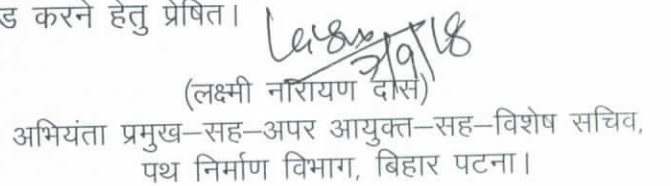 ड करने हेतु प्रेषित।
3/9/18
(लक्ष्मी नारायण दास)
अभियंता प्रमुख–सह–अपर आयुक्त–सह–विशेष सचिव,
पथ निर्माण विभाग, बिहार पटना।